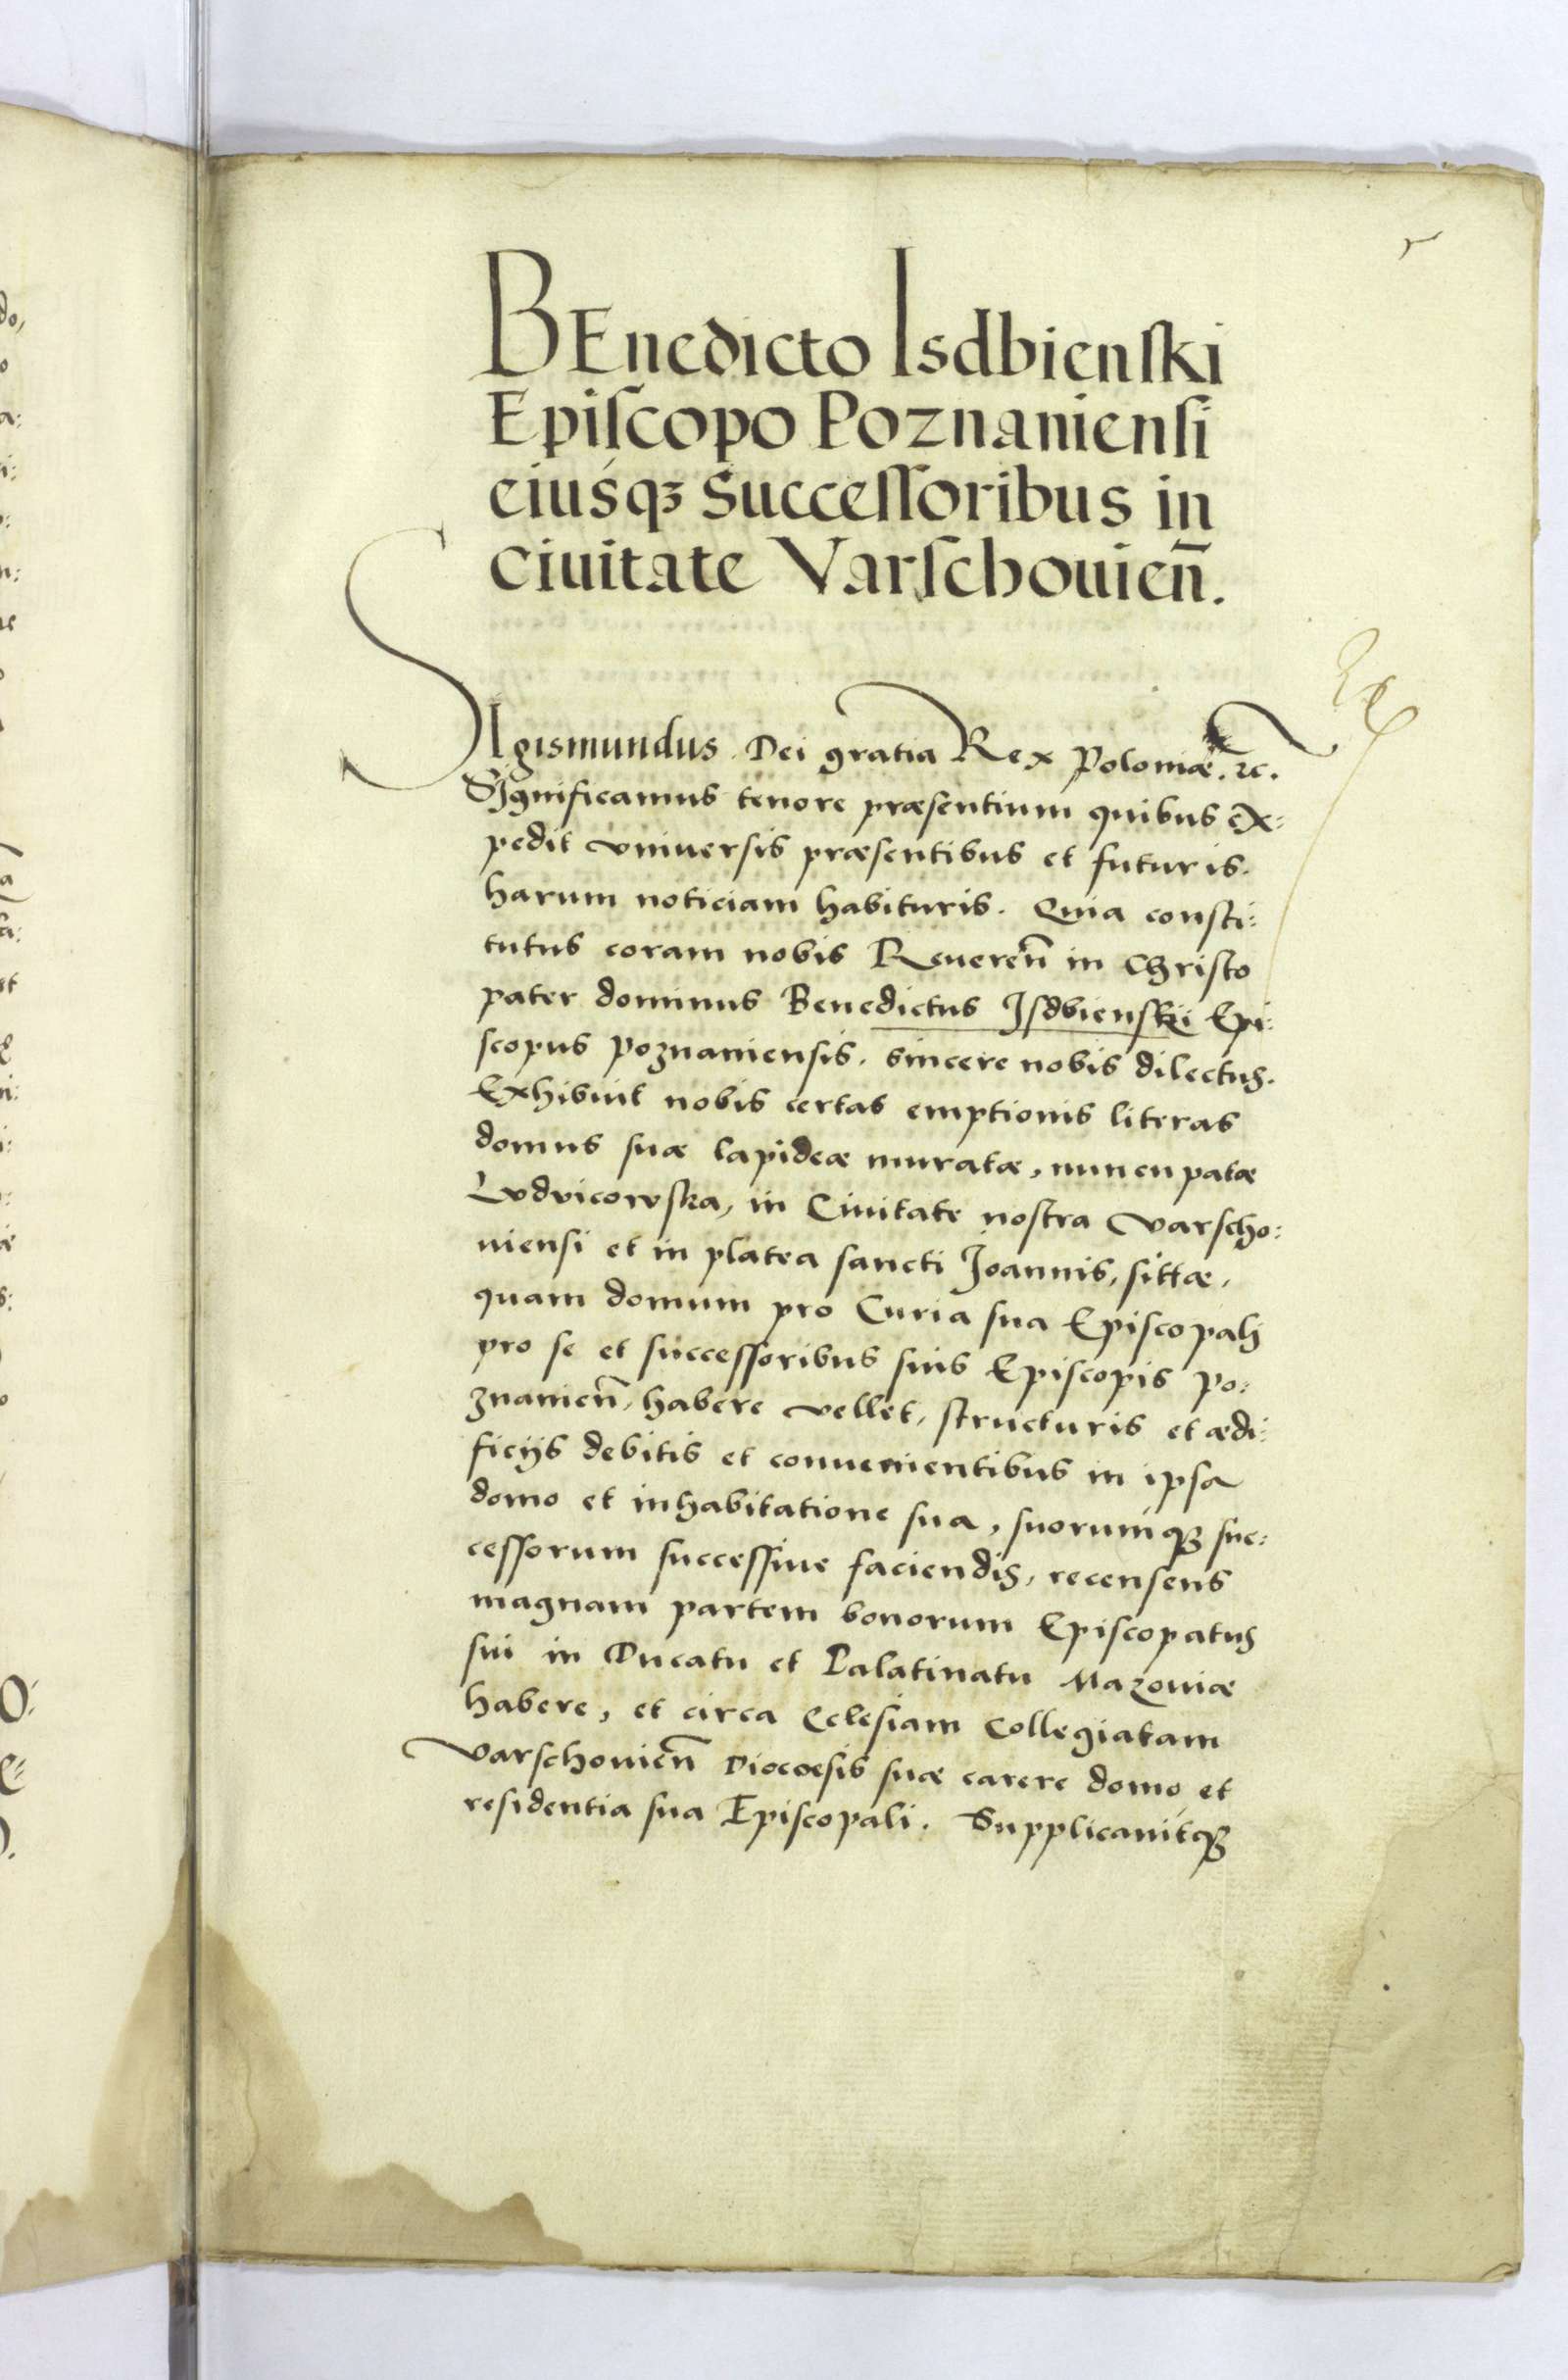 BEnedicto Isdbienski
Episcopo Poznaniensi
eiusq3 Successoribus in
ciuitate Varschouien̄.
SIgismundus Dei gratia Rex Poloniæ. &c.
Significamus tenore præsentium quibus ex=
pedit vniuersis præsentibus et futuris.
harum noticiam habituris. Quia consti=
tutus coram nobis Reueren̄ in Christo
pater dominus Benedictus Isdbienski Epi=
scopus Poznaniensis. sincere nobis dilectus.
Exhibuit nobis certas emptionis literas
domus suæ lapideæ muratæ, nuncupatæ
Ludvicowska, in Ciuitate nostra Varscho=
uiensi et in platea sancti Joannis, sittæ.
quam domum pro Curia sua Episcopali
pro se et successoribus suis Episcopis Po=
znanien̄, habere vellet, structuris et ædi=
ficijs debitis et conuenientibus in ipsa
domo et inhabitatione sua, suorumq3 suc=
cessorum successiue faciendis, recensens
magnam partem bonorum Episcopatus
sui in Ducatu et Palatinatu Mazouiæ
habere, et circa Eclesiam Collegiatam
Varschouien̄ Diocoesis suæ carere domo et
residentia sua Episcopali. Supplicauitq3